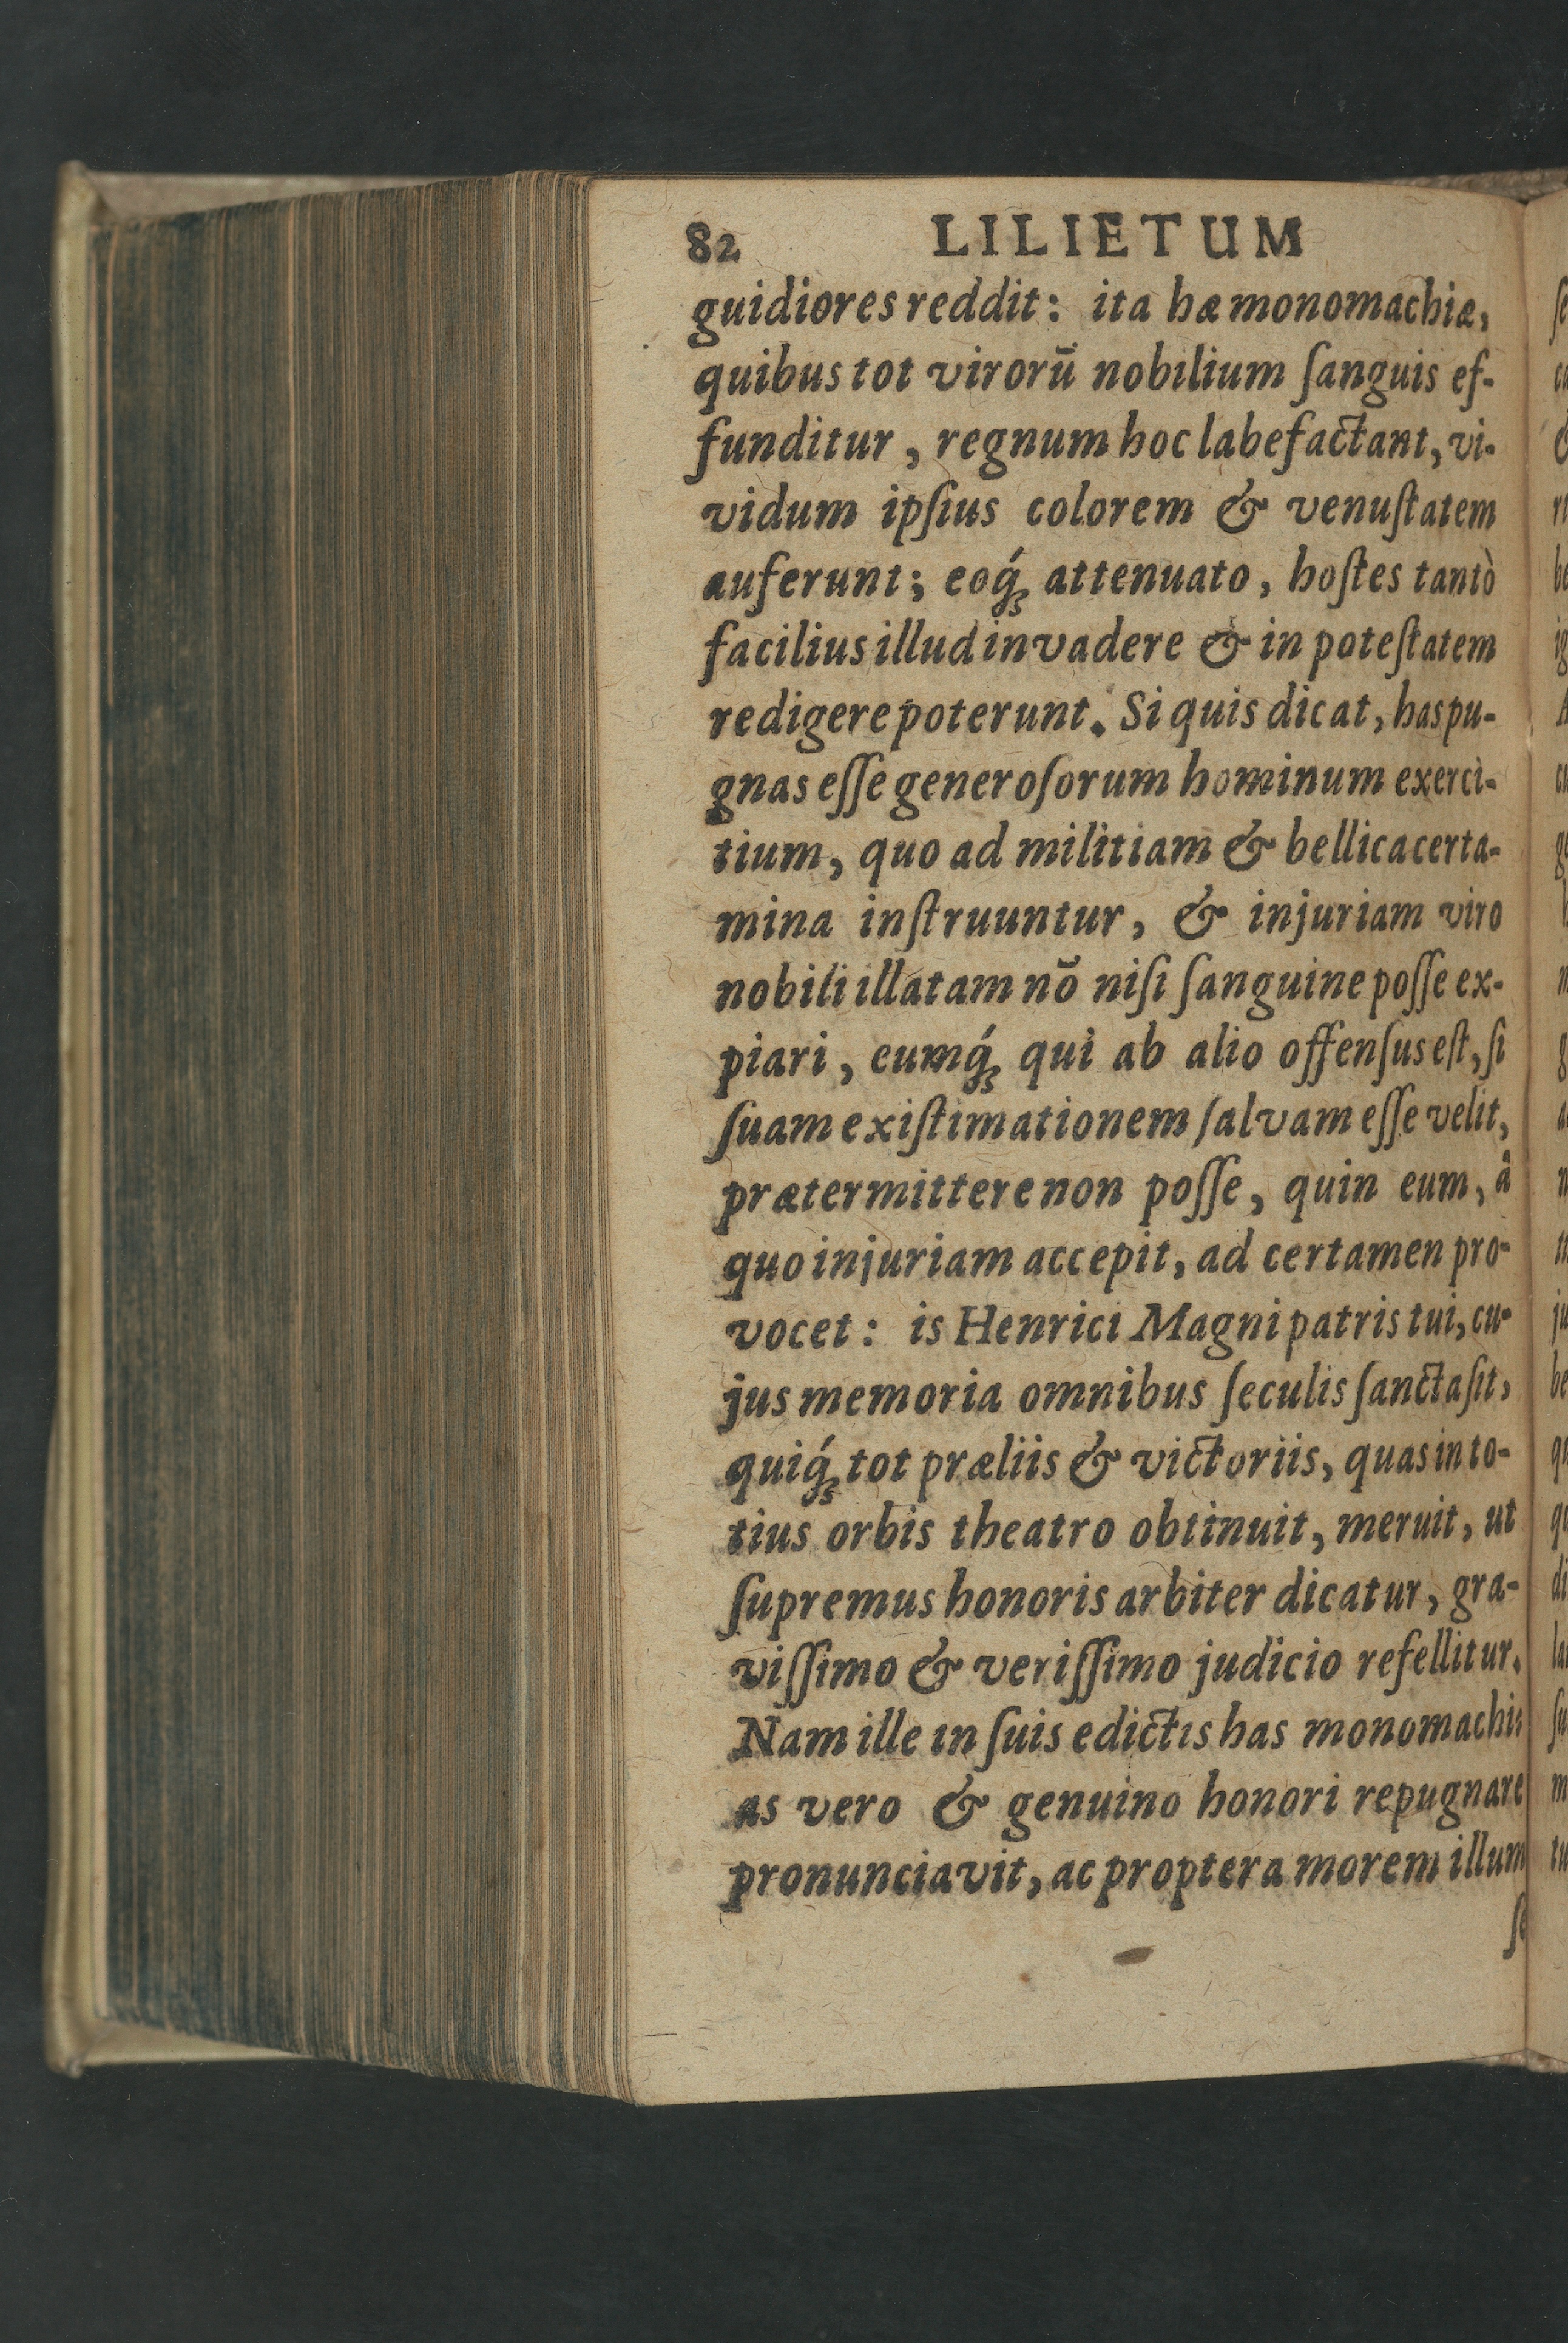 82 LILIETUM
guidiores reddit: ita hæ monomachiæ,
quibus tot virorū nobilium ſanguis ef-
funditur, regnum hoc labefactant, vi-
vidum ipſius colorem & venuſtatem
auferunt; eoq́ꝫ attenuato, hoſtes tantò
facilius illud invadere & in poteſtatem
redigere poterunt. Si quis dicat, has pu-
gnas eſſe generoſorum hominum exerci-
tium, quo ad militiam & bellica certa-
mina inſtruuntur, & injuriam viro
nobili illatam nō niſi ſanguine poſſe ex-
piari, eumq́ꝫ qui ab alio offenſus eſt, ſi
ſuam exiſtimationem ſalvam eſſe velit,
prætermittere non poſſe, quin eum, â
quo injuriam accepit, ad certamen pro-
vocet: is Henrici Magni patris tui, cu-
jus memoria omnibus ſeculis ſancta ſit,
quiq́ꝫ tot præliis & victoriis, quas in to-
tius orbis theatro obtinuit, meruit, ut
ſupremus honoris arbiter dicatur, gra-
viſſimo & veriſſimo judicio refellitur.
Nam ille in ſuis edictis has monomachi-
as vero & genuino honori repugnare
pronunciavit, ac proptera morem illum